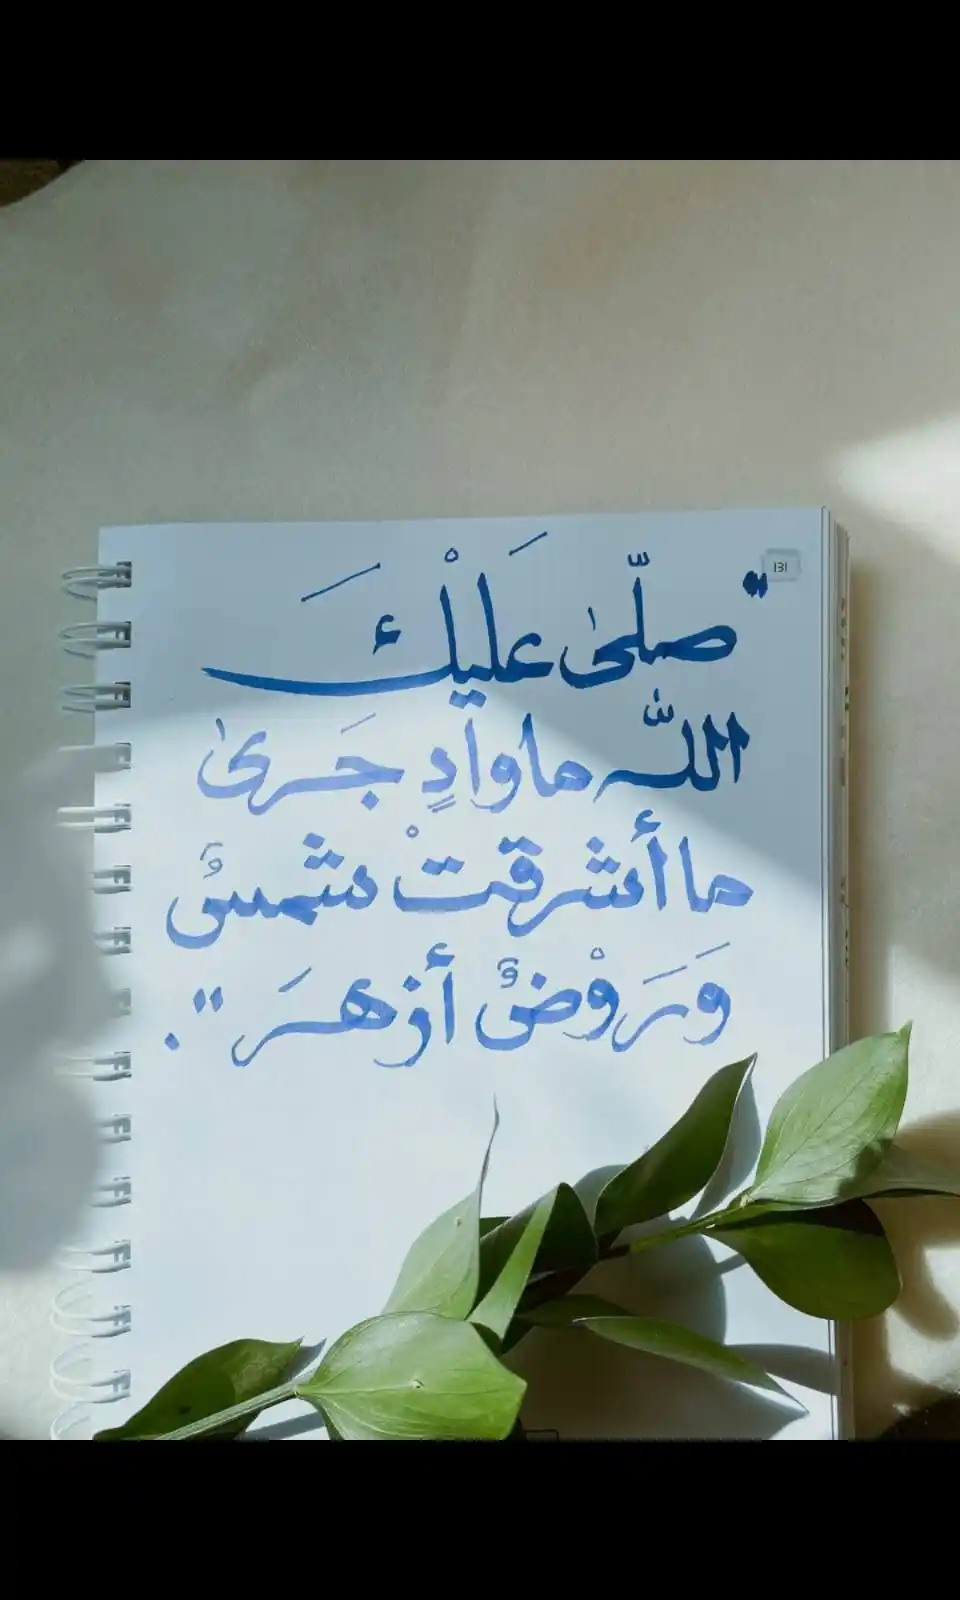 131
"صلّىٰ عَلَيْكَ
اللّٰه ما وادٍ جَرىٰ
ما أشرقتْ شمسٌ
وَرَوْضٌ أزهرَ".